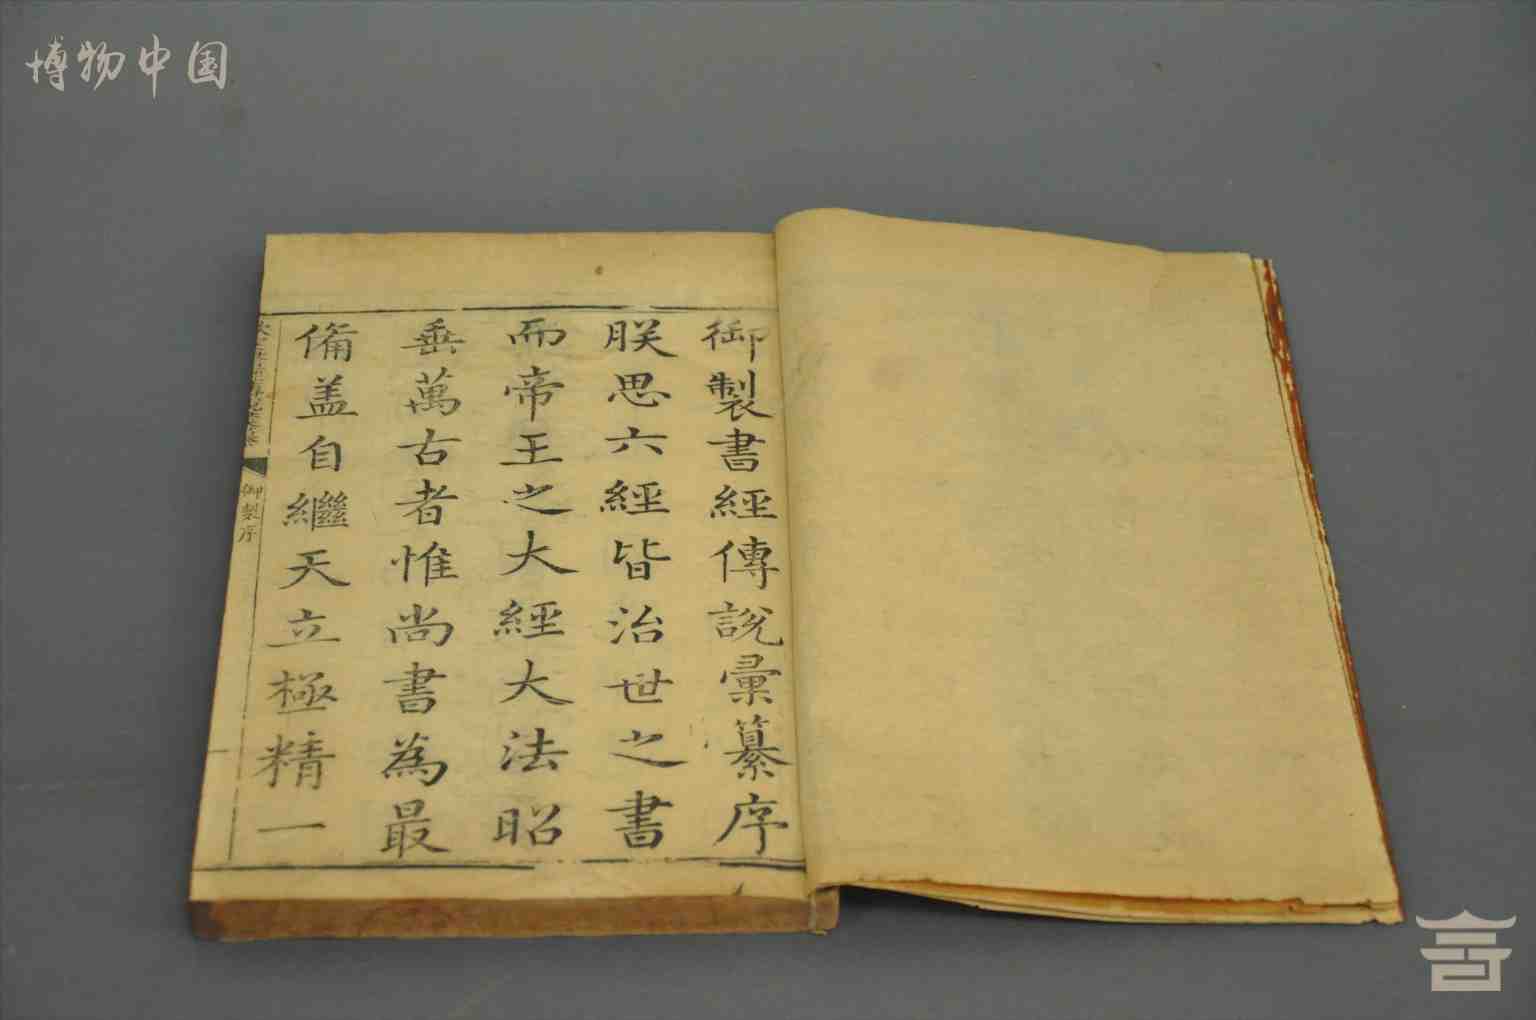 博物中国
御製書經傳說彙纂序
朕思六經皆治世之書
而帝王之大經大法昭
垂萬古者惟尚書為最
備盖自繼天立極精一
御製序